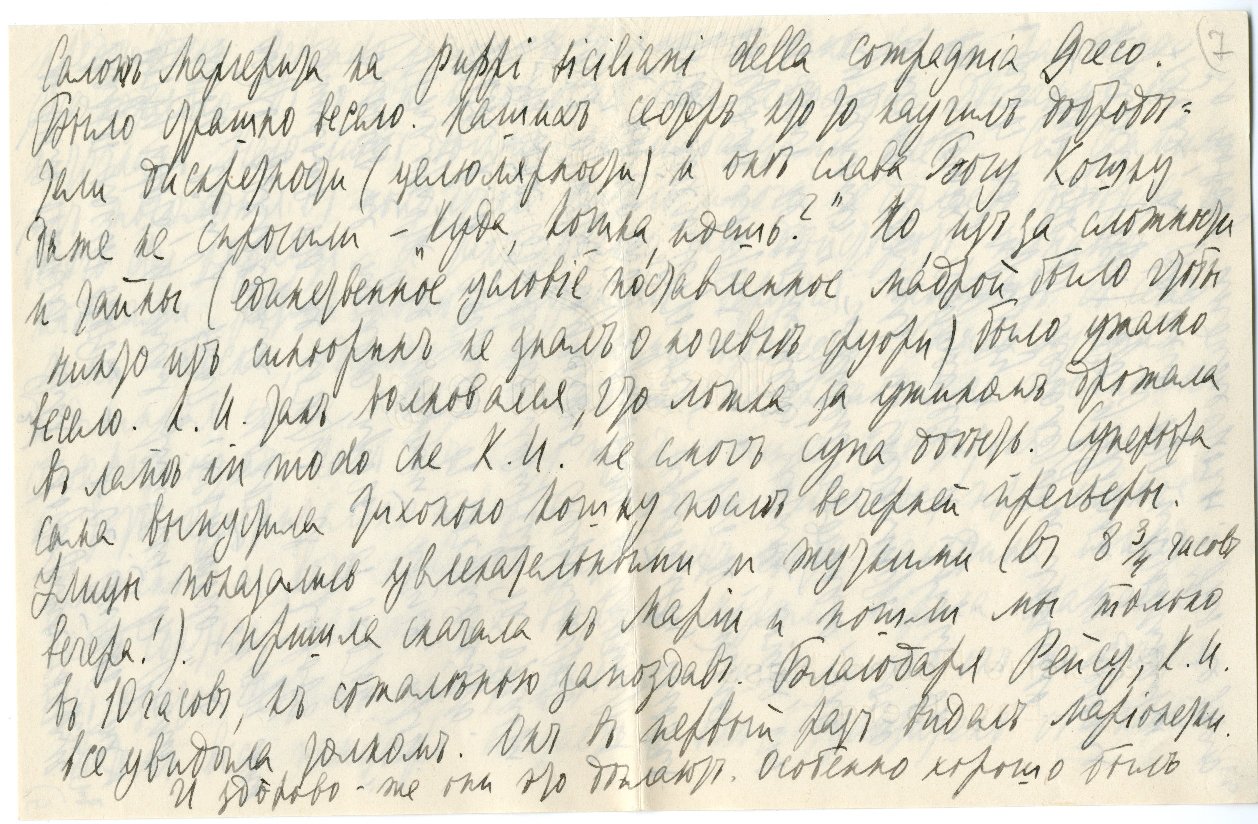 (7
Салонъ Маргерита на Puppi siciliani della compagnia Greco.
Было страшно весело. Нашихъ сестръ кто то научилъ добродѣ=
тели дискретности (целюлярности) и онѣ слава Богу Кошку
даже не спросили – „Куда, Кошка, идешь?" Но изъ за сложности
и тайны (единственное условіе поставленное мадрой было чтобы
никто изъ синьоринъ не зналъ о ночевкѣ фуори) было ужасно
весело. К. И. такъ волновался, что ложка за ужиномъ дрожала
въ лапѣ in modo che К. И. не смогъ супа доѣсть. Суперіора
сама выпустила тихонько Кошку послѣ вечерней прегьеры.
Улицы показались увлекательными и жуткими (въ 8 3/4 часовъ
вечера!). Пришла сначала къ Маріи и пошли мы только
въ 10 часовъ, къ сожалѣнію запоздавъ. Благодаря Рейсу, К. И.
все увидѣла толкомъ. Онъ въ первый разъ видалъ маріонетки.
И здорово-же они это дѣлаютъ. Особенно хорошо былъ